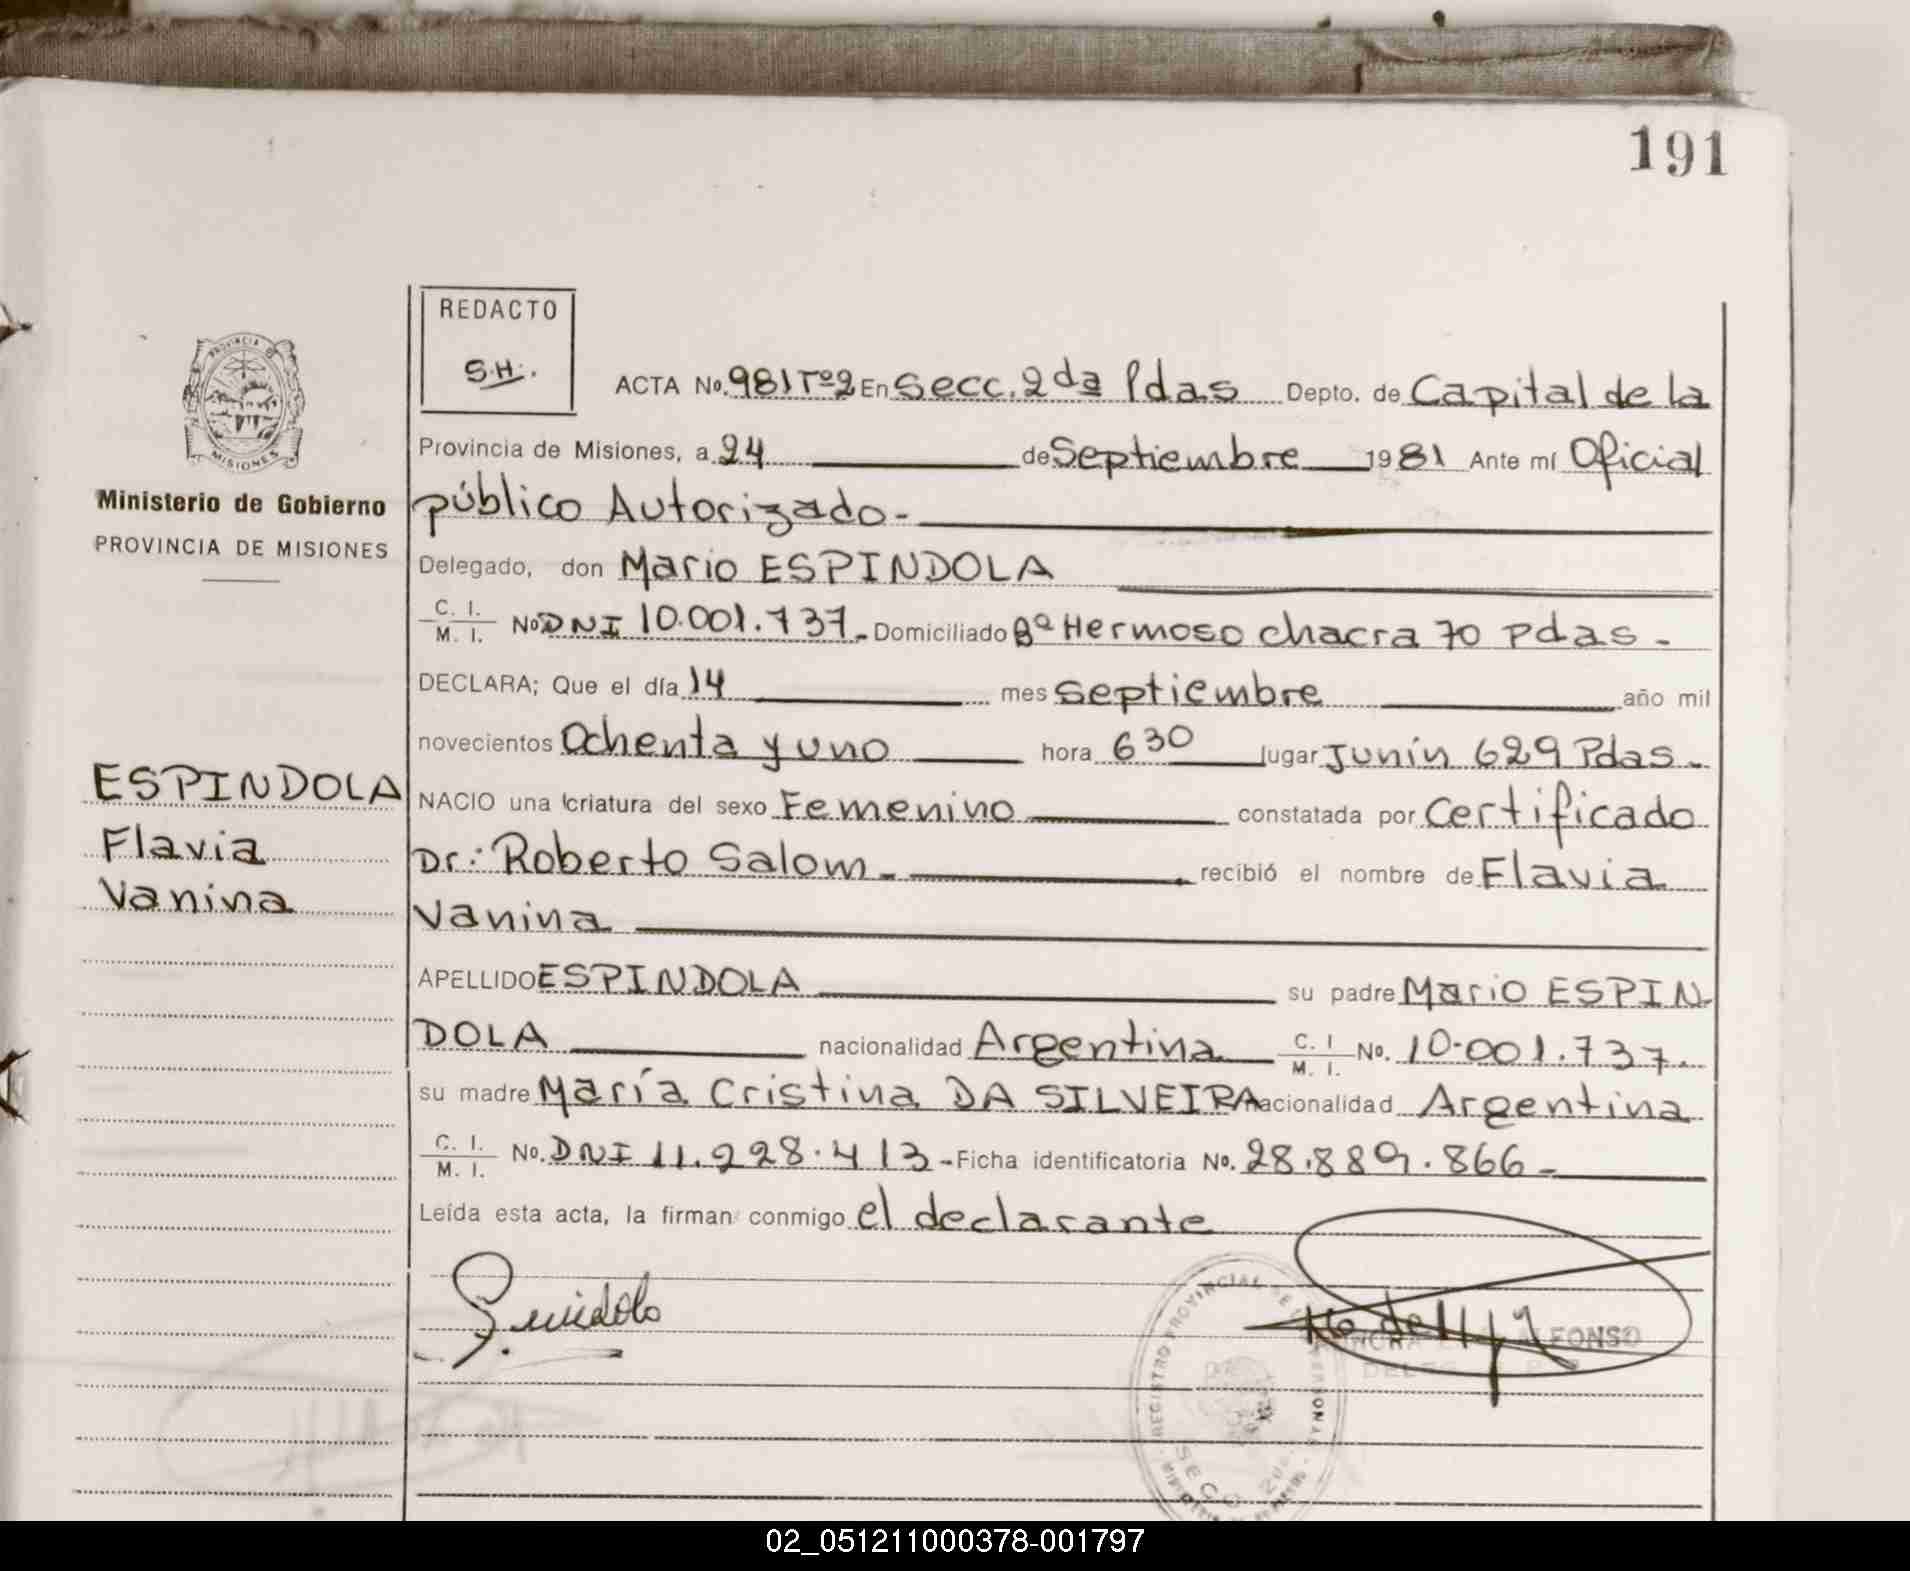 191
REDACTO
S.H.
ACTA No. 981 Tº2 En Secc. 2da Pdas Depto. de Capital de la
Provincia de Misiones, a 24 de Septiembre 1981 Ante mí Oficial
público Autorizado-
Delegado, don Mario ESPINDOLA
C. I.
M. I. Nº DNI 10.001.737- Domiciliado Bº Hermoso chacra 70 Pdas-
DECLARA; Que el día 14 mes septiembre año mil
novecientos Ochenta y uno hora 630 lugar Junín 629 Pdas-
NACIO una criatura del sexo Femenino constatada por Certificado
Dr.: Roberto Salom- recibió el nombre de Flavia
Vanina
APELLIDO ESPINDOLA su padre Mario ESPIN
DOLA nacionalidad Argentina C. I
M. I. No. 10.001.737-
su madre María Cristina DA SILVEIRA nacionalidad Argentina
C. I.
M. I. No. DNI 11.228.413- Ficha identificatoria No. 28.889.866-
Leída esta acta, la firman conmigo el declarante
PROVINCIA DE
MISIONES
Ministerio de Gobierno
PROVINCIA DE MISIONES
ESPINDOLA
Flavia
Vanina
REGISTRO PROVINCIAL DE PERSONAS
ALFONSO
02_051211000378-001797